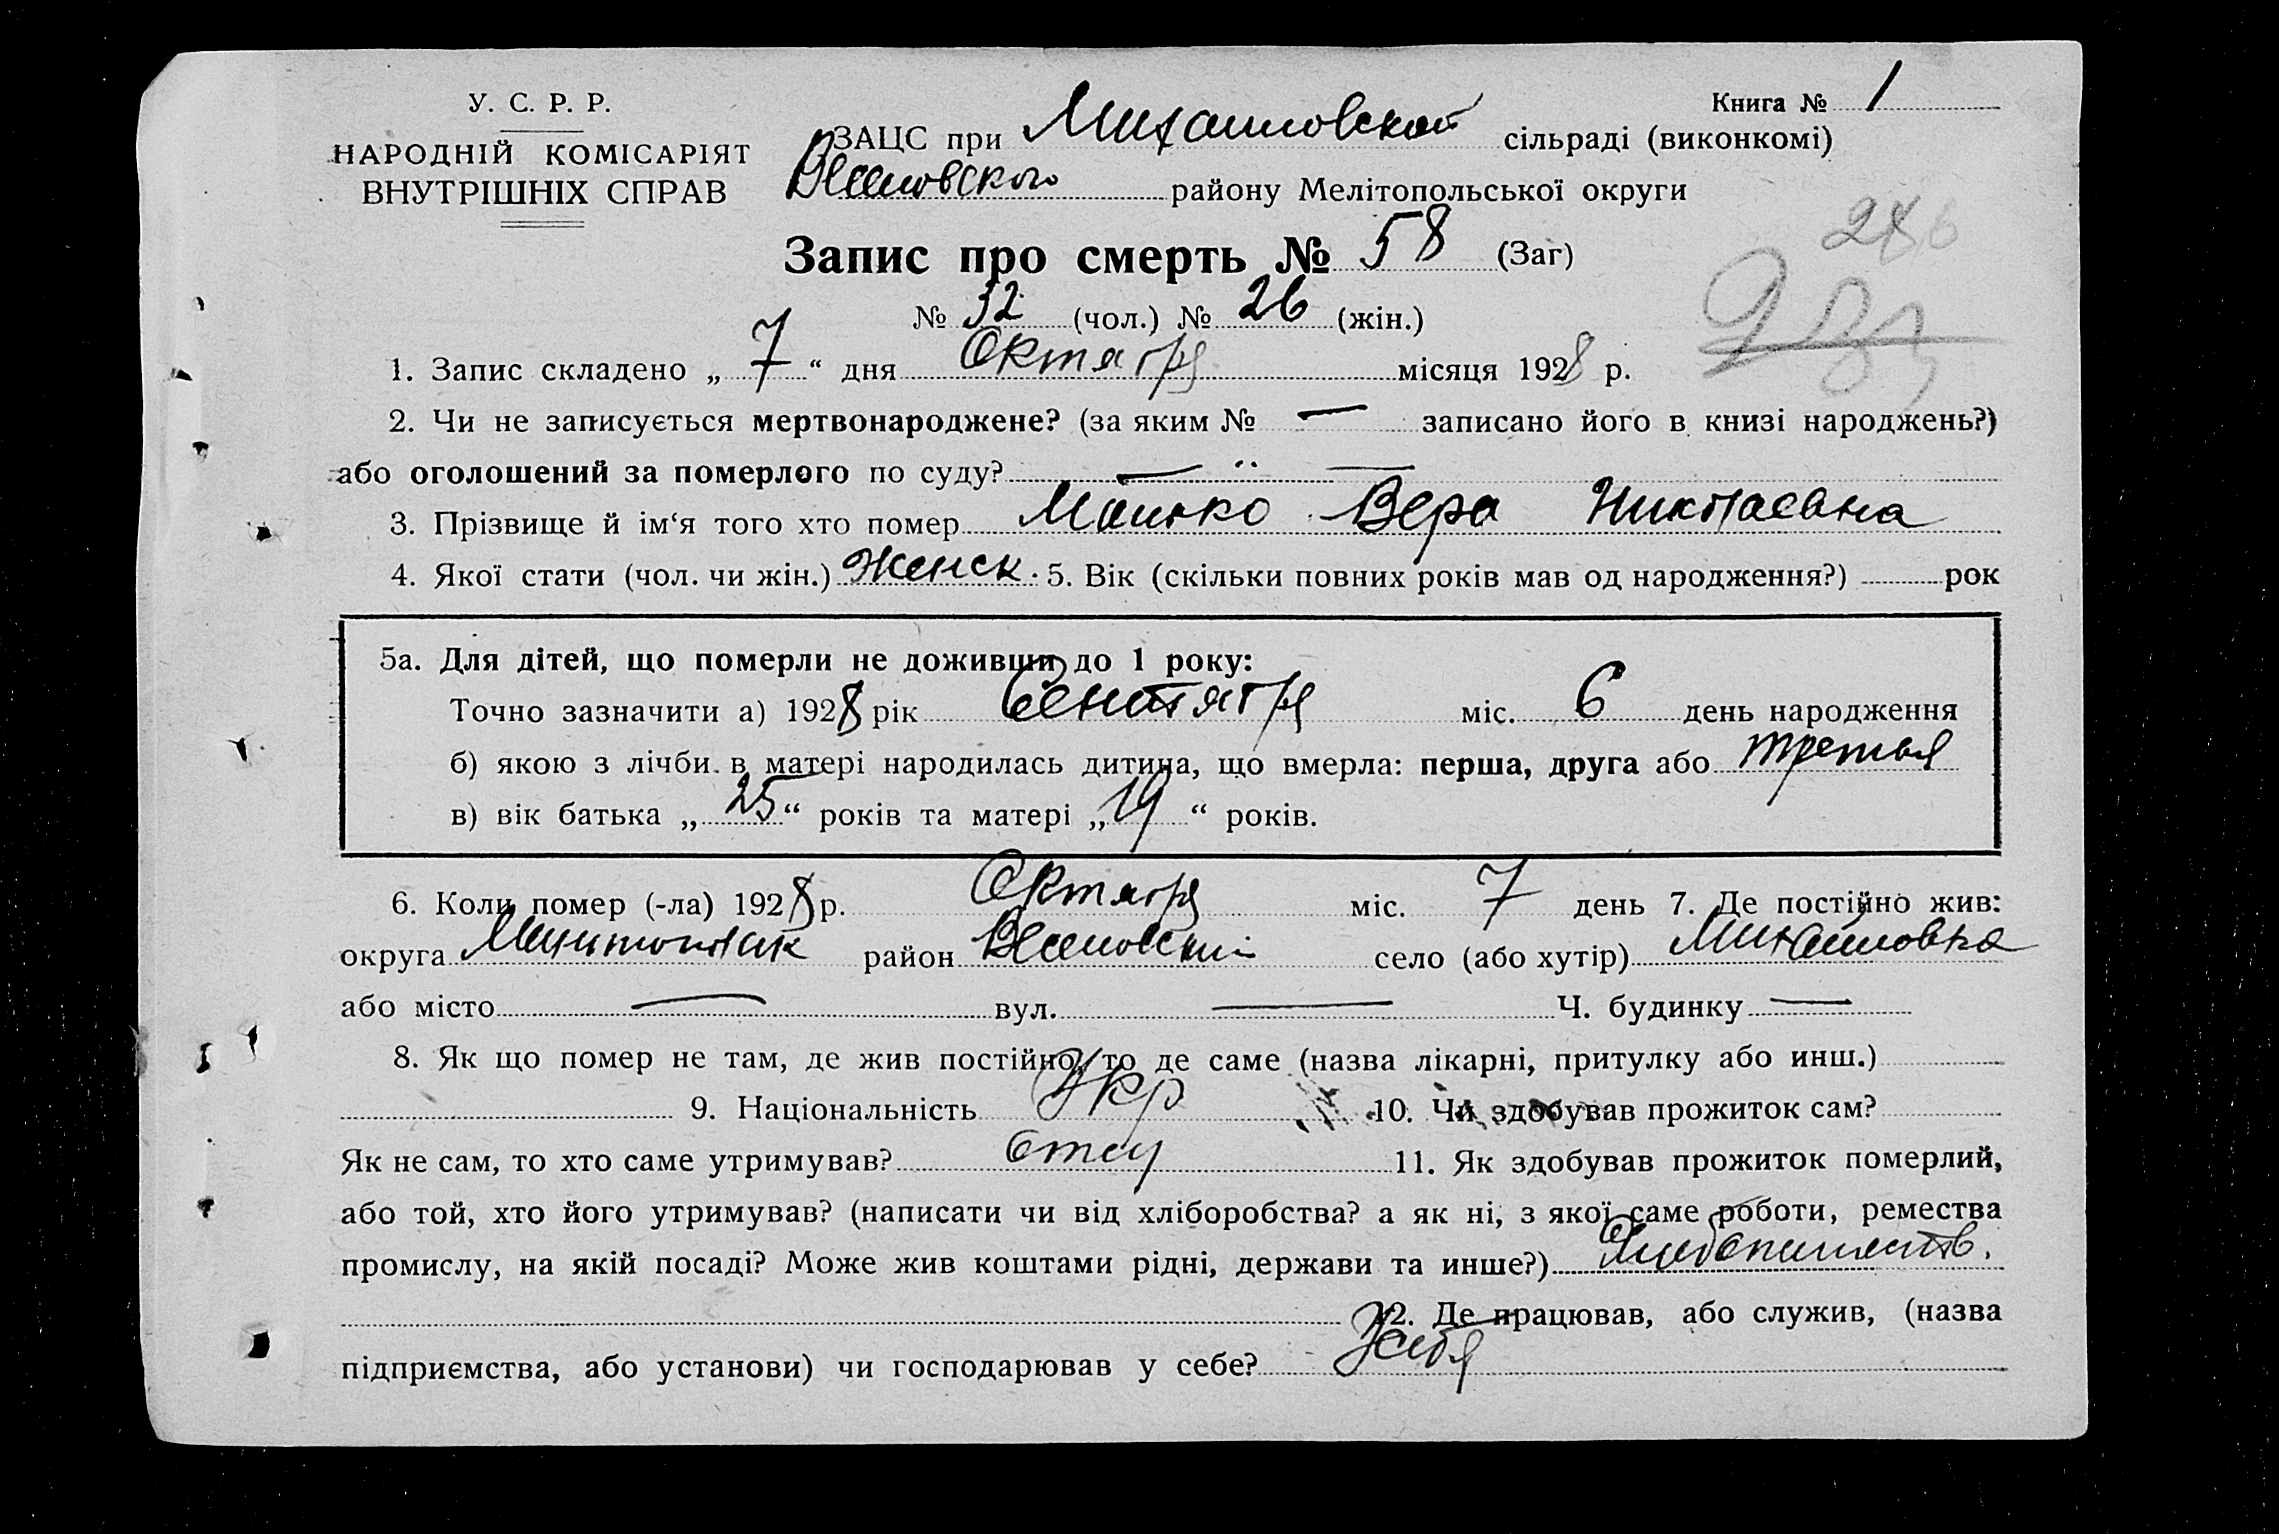 У. С. Р. Р.
НАРОДНІЙ КОМІСАРІЯТ
ВНУТРІШНІХ СПРАВ
Книга № 1
ЗАЦС при Михайловской сільраді (виконкомі)
району Мелітопольської округи
286
Запис про смерть № 58 (Заг)
№ 32 (чол.) № 26 (жін.)
1. Запис складено „ 7 “ дня Октября місяця 1928 р.
2. Чи не записується мертвонароджене? (за яким № — записано його в книзі народжень?)
або оголошений за померлого по суду? — " —
3. Прізвище й ім‘я того хто помер Вера Николаевна
4. Якої стати (чол. чи жін.) Женск. 5. Вік (скільки повних років мав од народження?) рок
5а. Для дітей, що померли не доживши до 1 року:
Точно зазначити а) 1928 рік Сентября міс. 6 день народження
б) якою з лічби в матері народилась дитина, що вмерла: перша, друга або третья
в) вік батька „ 25 “ років та матері „ 19 “ років.
6. Коли помер (-ла) 1928 р. Октября міс. 7 день 7. Де постійно жив:
округа район село (або хутір) Михайловка
або місто — вул. — Ч. будинку —
8. Як що помер не там, де жив постійно, то де саме (назва лікарні, притулку або инш.)
9. Національність Укр 10. Чи здобував прожиток сам?
Як не сам, то хто саме утримував? Отец 11. Як здобував прожиток померлий,
або той, хто його утримував? (написати чи від хліборобства? а як ні, з якої саме роботи, ремества
промислу, на якій посаді? Може жив коштами рідні, держави та инше?)
12. Де працював, або служив, (назва
підприємства, або установи) чи господарював у себе? У себя